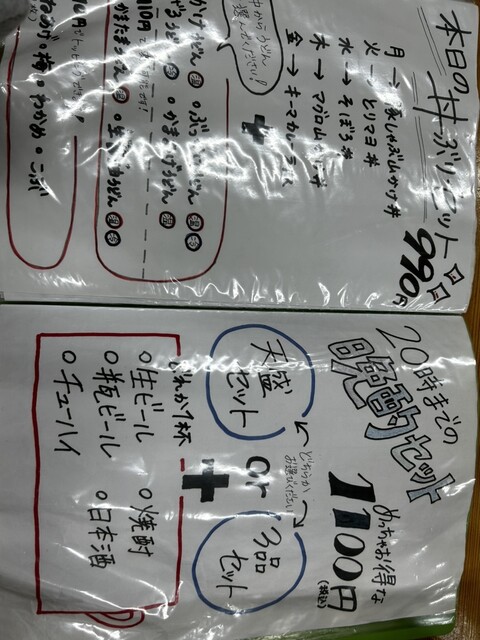 本日の丼ぶりセット 990円
月→豚しゃぶ山かけ丼
火→とりマヨ丼
水→そぼろ丼
木→マグロ山かけ丼
金→キーマカレーライス
+
中からうどん
選んでください!
かけうどん 温 ○ぶっかけうどん 温 冷
ざるうどん ○かまあげうどん 温
110円
かまたまうどん 温 ○生
○梅 ○わかめ ○こんぶ
20時までの
晩酌セット
めっちゃお得な
1100円(税込)
天盛セット
どちらか
お選びください
or
2品セット
+
どれか1杯
○生ビール ○焼酎
○瓶ビール ○日本酒
○チューハイ